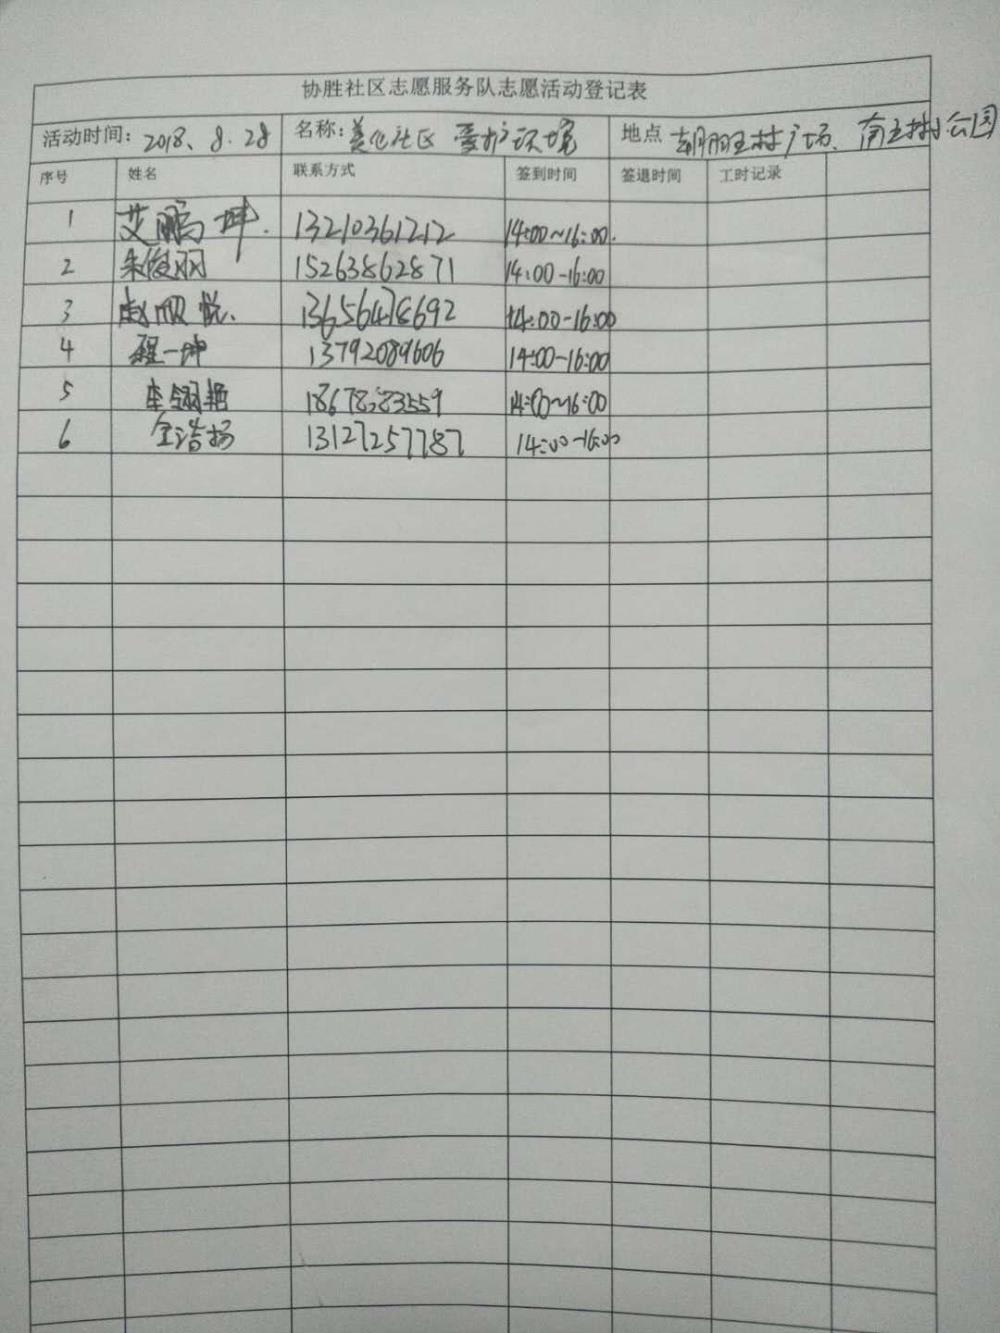 协胜社区志愿服务队志愿活动登记表
活动时间：2018、8.28 名称：美化社区 爱护环境 地点 朝阳王村广场、南王村公园
序号 姓名 联系方式 签到时间 签退时间 工时记录
1 艾鹏坤. 13210361212 14:00~16:00.
2 朱俊羽 15263862871 14:00-16:00
3 赵顺悦. 13656478692 14:00-16:00
4 程一坤 13792089606 14:00-16:00
5 李翎艳 18678383559 14:00~16:00
6 全浩扬 13127257787 14:00-16:00